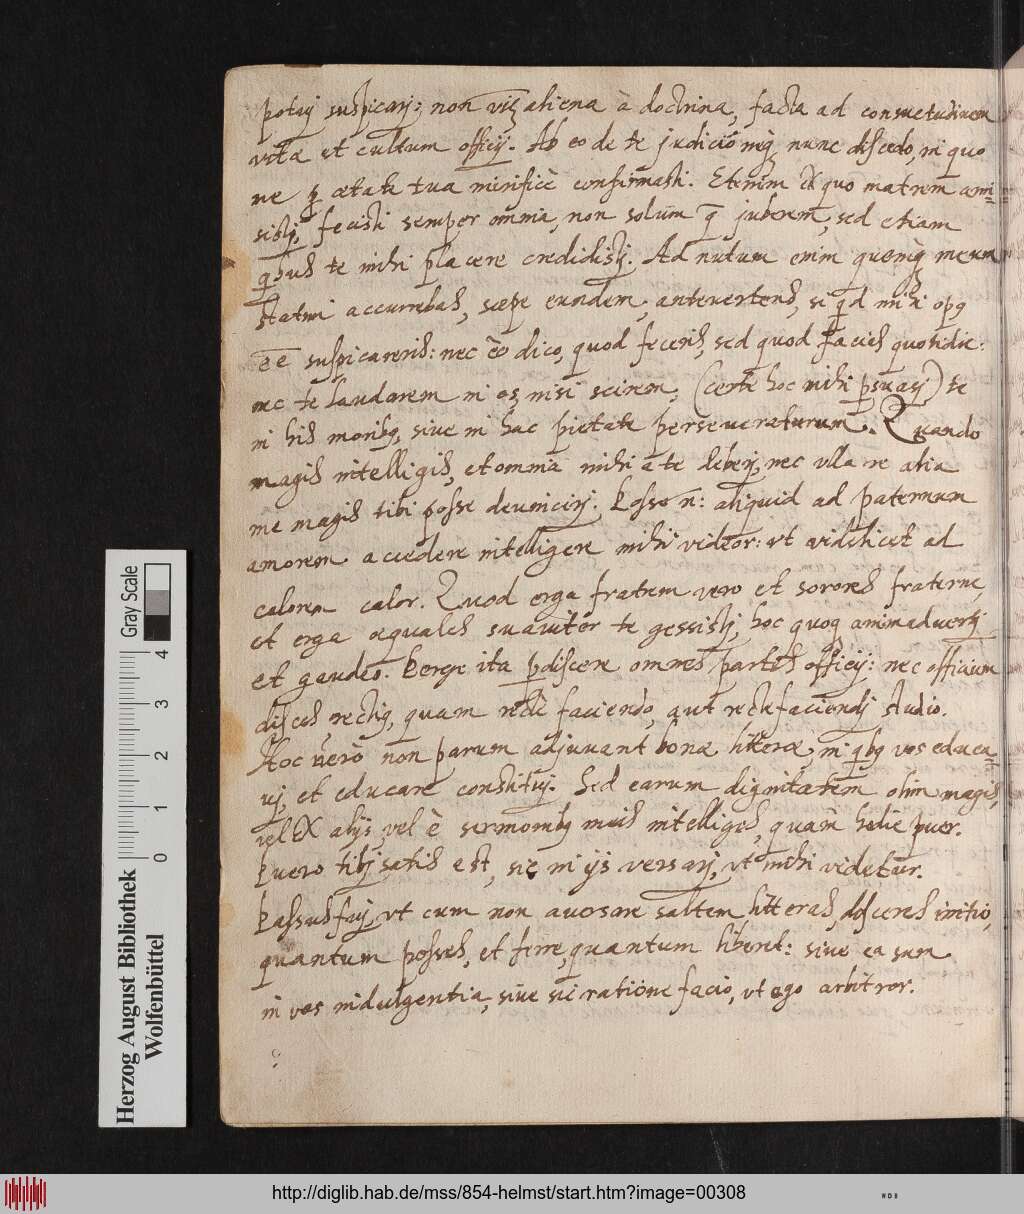 potui suspicari; non vis aliena à doctrina, facta ad consuetudinem
vitæ et cultum officij. Ab eo de te judicio meq nunc discedo, in quo
ne p ætate tua mirificè confirmasti. Etenim ex quo matrem ami=
sisti, fecisti semper omnia, non solum q juberem, sed etiam
qbus te mihi placere credidisti. Ad nutum enim quemq meum
statim accurrebas, sæpe eundem, antevertens, si qd mihi opq
ee suspicareris: nec eo dico, quod feceris, sed quod facies quotidie:
nec te laudarem in os, nisi scirem, (certe hoc mihi psuasi) te
in his moribq, sive in hac pietate perseveraturum. Quando
magis intelligis, et omnia mihi a te deberi, nec ulla re alia
me magis tibi posse devinciri. Posse n: aliquid ad paternum
amorem accedere intelligere mihi videor: ut videlicet ad
calorem calor. Quod erga fratrem vero et sorores fraterne,
et erga æquales suaviter te gessisti, hoc quoq animadverti
et gaudeo. Perge ita pdiscere omnes partes officij: nec officium
disces rectiq, quam recte faciendo, aut recte faciendi studio.
Hoc vero non parum adjuvant bonæ litteræ, in qbq vos educa=
vi, et educare constitui. Sed earum dignitatem olim magis,
vel ex alijs vel è sermonibq meis intelliges, quam hodie puer.
Puero tibi satis est, sic in ijs versari, ut mihi videtur.
Passus fui, ut cum non avosare saltem litteras, disceres initio,
quantum posses, et ferre, quantum liberet: sive ea sum
in vos indulgentia, sive sic ratione facio, ut ego arbitror.
Gray Scale
0 1 2 3 4
Herzog August Bibliothek
Wolfenbüttel
http://diglib.hab.de/mss/854-helmst/start.htm?image=00308